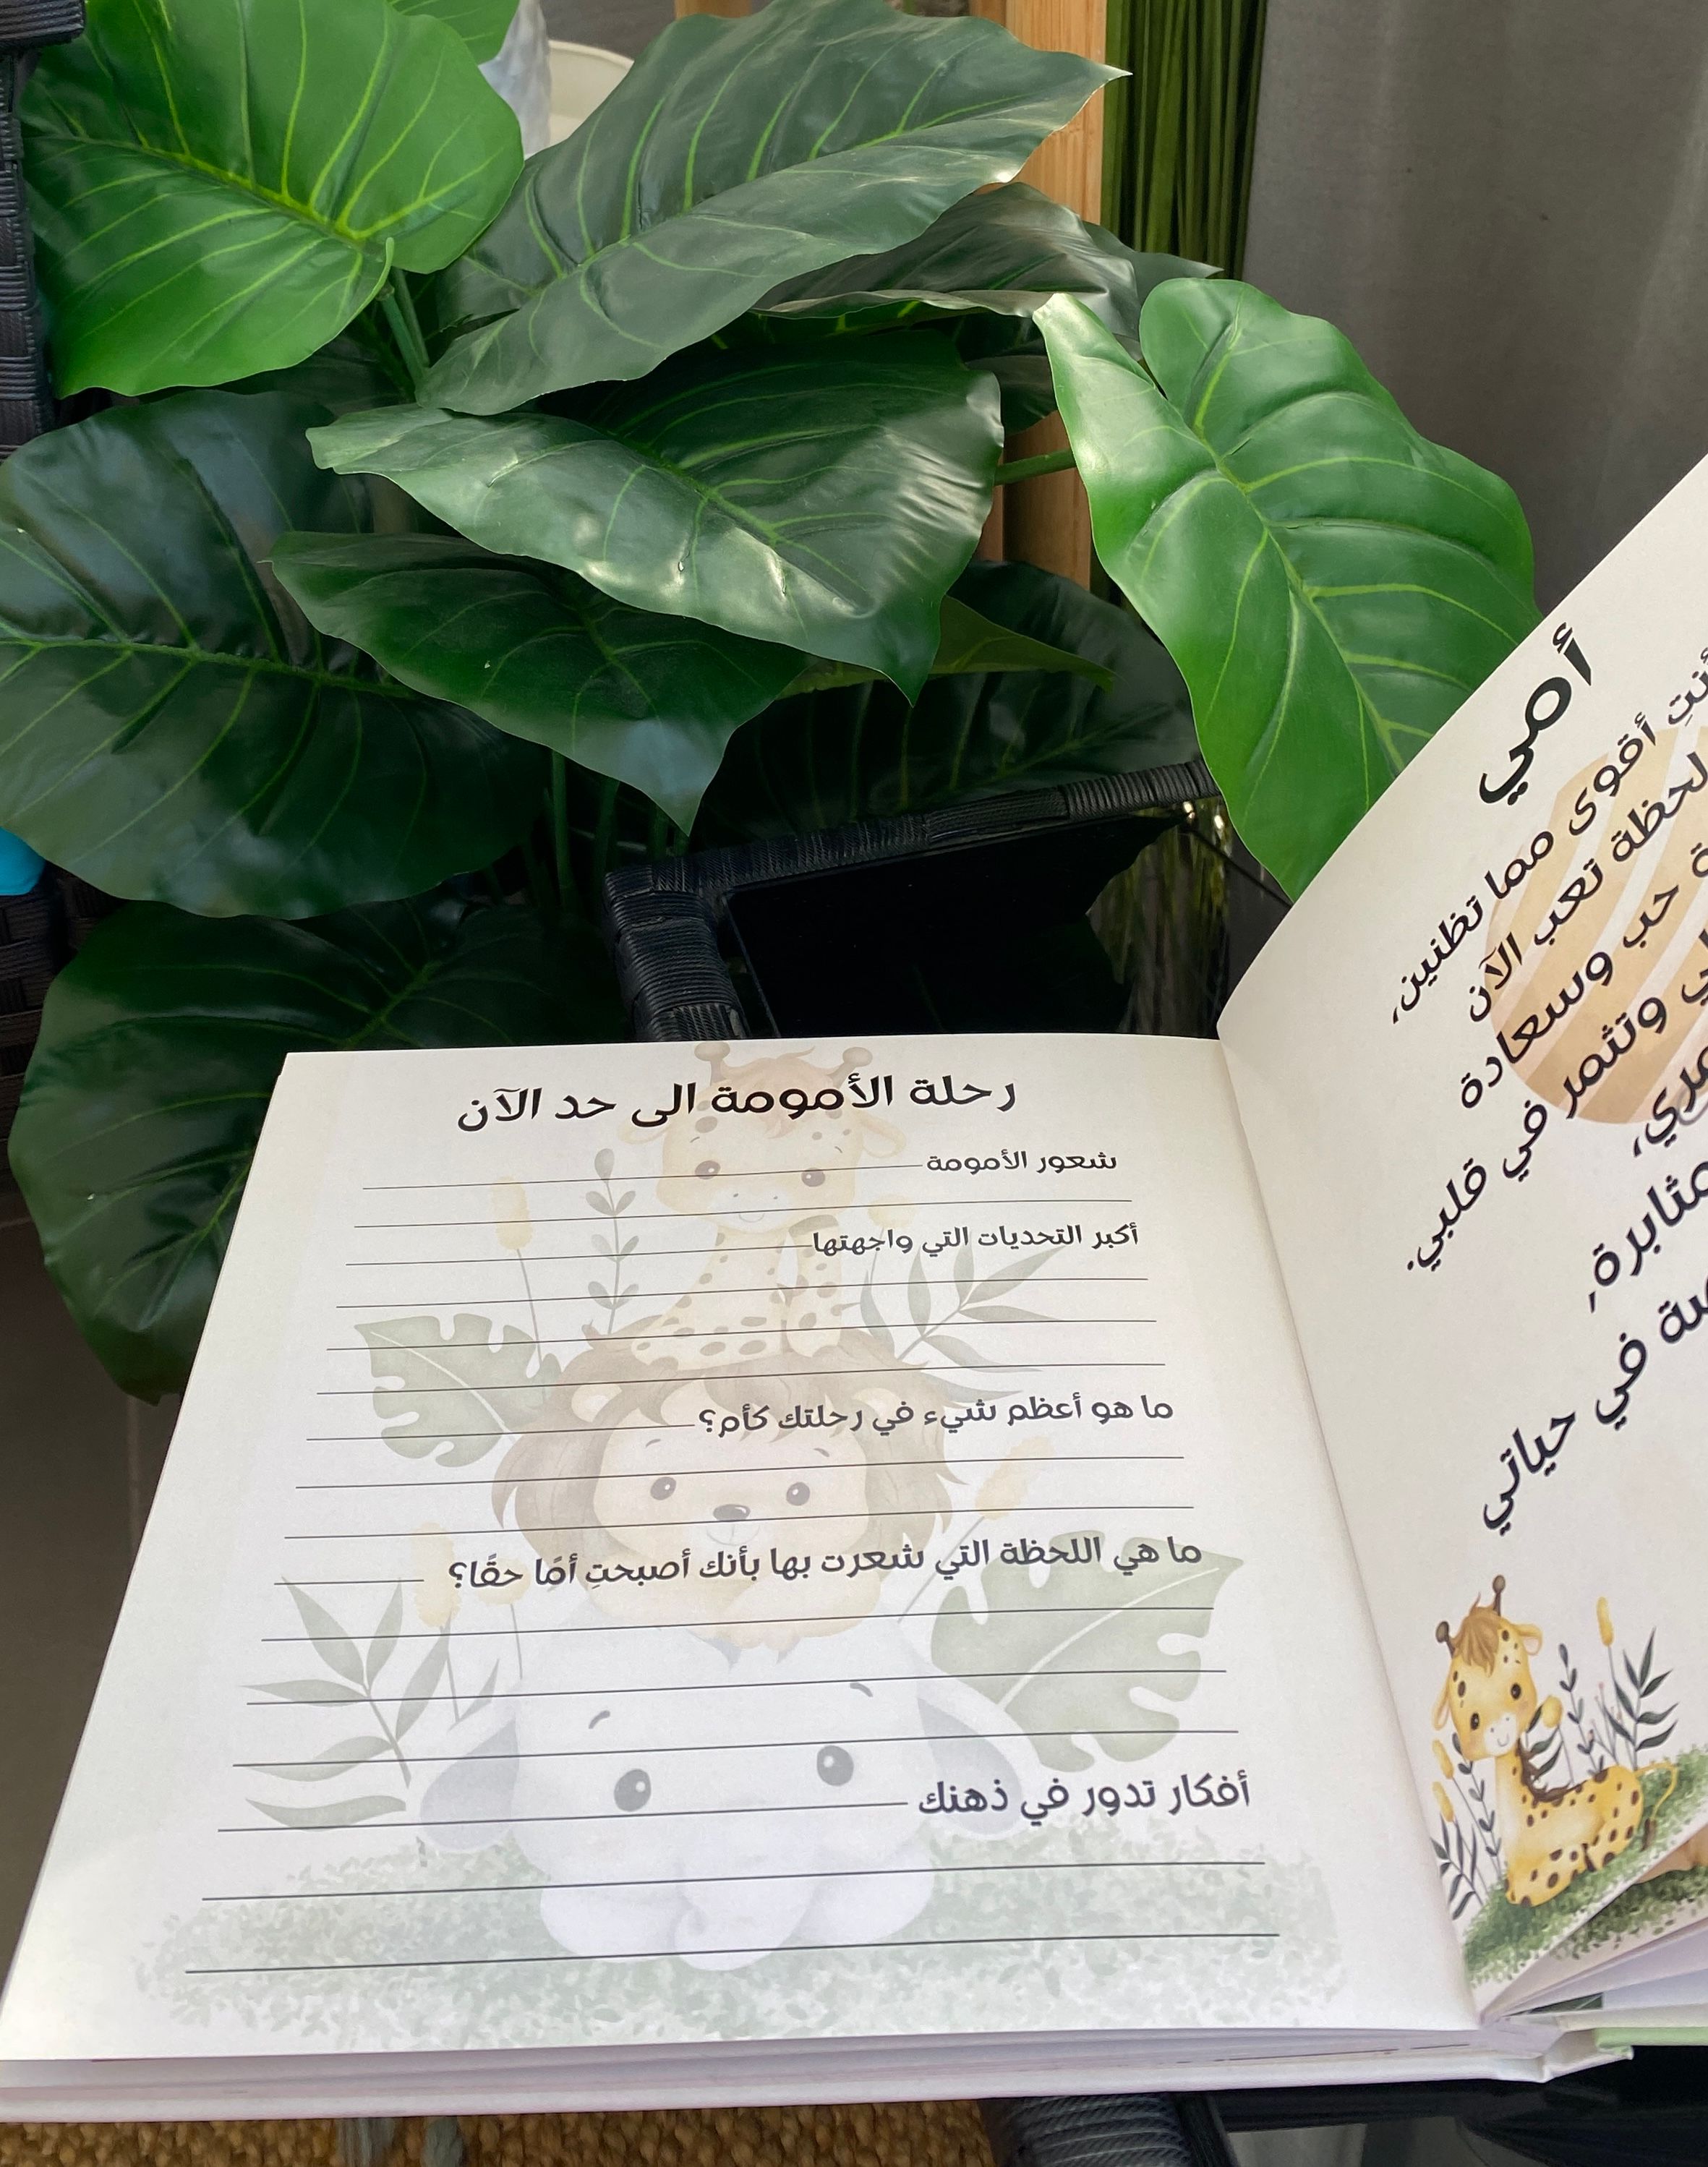 أمي
أنتِ أقوى مما تظنين،
لحظة تعب الآن
حب وسعادة
وتثمر في قلبي.
مثابرة,
في حياتي
رحلة الأمومة الى حد الآن
شعور الأمومة
أكبر التحديات التي واجهتها
ما هو أعظم شيء في رحلتك كأم؟
ما هي اللحظة التي شعرت بها بأنك أصبحتِ أمًا حقًا؟
أفكار تدور في ذهنك